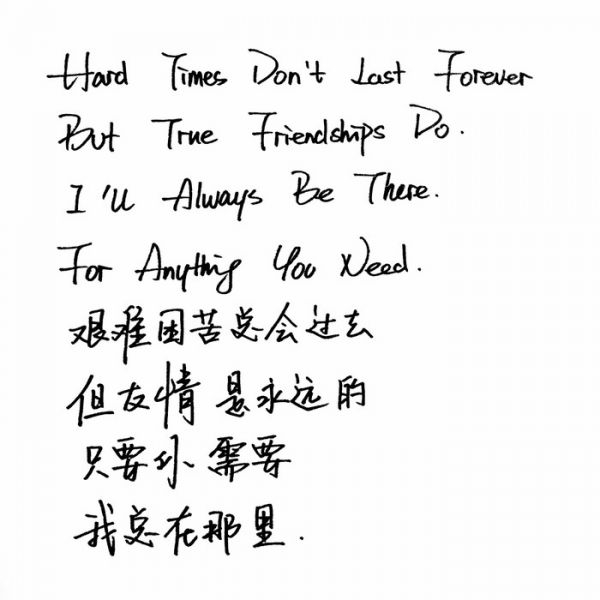 Hard Times Don't Last Forever
But True Friendships Do.
I'll Always Be There.
For Anything You Need.
艰难困苦总会过去
但友情是永远的
只要你需要
我总在那里.